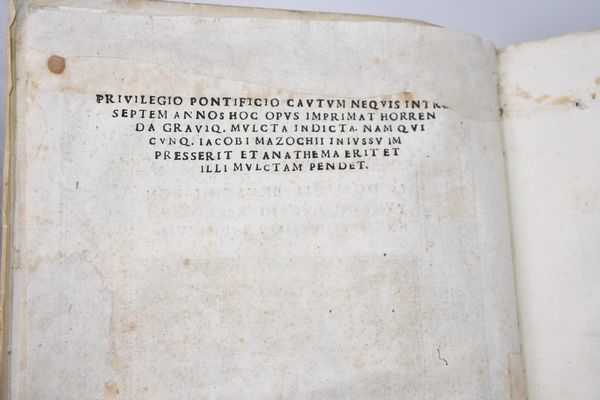 PRIVILEGIO PONTIFICIO CAVTVM NEQVIS INTRA
SEPTEM ANNOS HOC OPVS IMPRIMAT HORREN
DA GRAVIQ. MVLCTA INDICTA. NAM QVI
CVNQ. IACOBI MAZOCHII INIVSSV IM
PRESSERIT ET ANATHEMA ERIT ET
ILLI MVLCTAM PENDET.